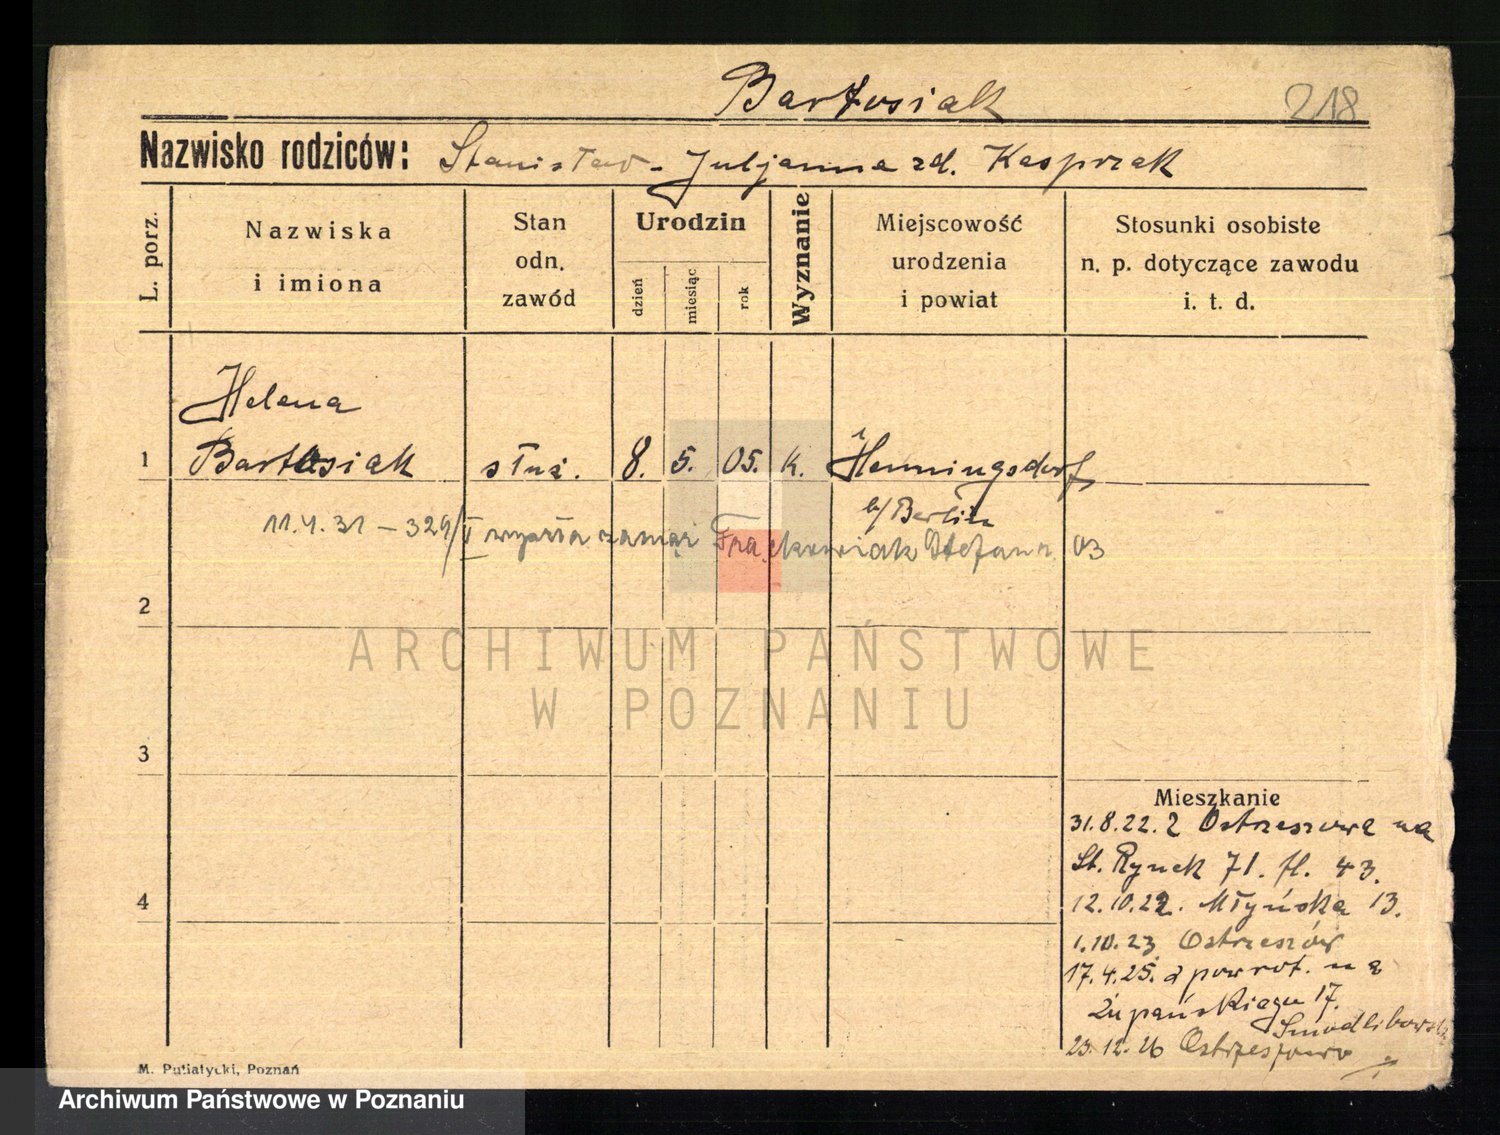 Bartosiak 218
Nazwisko rodziców: Stanisław - Juljanna zd. Kasprzak
L. porz.
Nazwiska
i imiona
Stan
odn.
zawód
Urodzin
dzień
miesiąc
rok
Wyznanie
Miejscowość
urodzenia
i powiat
Stosunki osobiste
n. p. dotyczące zawodu
i. t. d.
Helena
1 Bartosiak służ. 8. 5. 05. k. Henningsdorf
b/Berlin
11.4.31 – 329/II wyszła zamąż Frąckowiak Stefana 03
2
ARCHIWUM PAŃSTWOWE
W POZNANIU
3
Mieszkanie
31.8.22. z Ostrzeszowa na
St. Rynek 71. fl. 43.
4
12.10.22. Młyńska 13.
1.10.23 Ostrzeszów
17.4.25. z powrot. na
Żupańskiego 17.
23.12.26 Ostrzeszowo
M. Putiatycki, Poznań
Archiwum Państwowe w Poznaniu